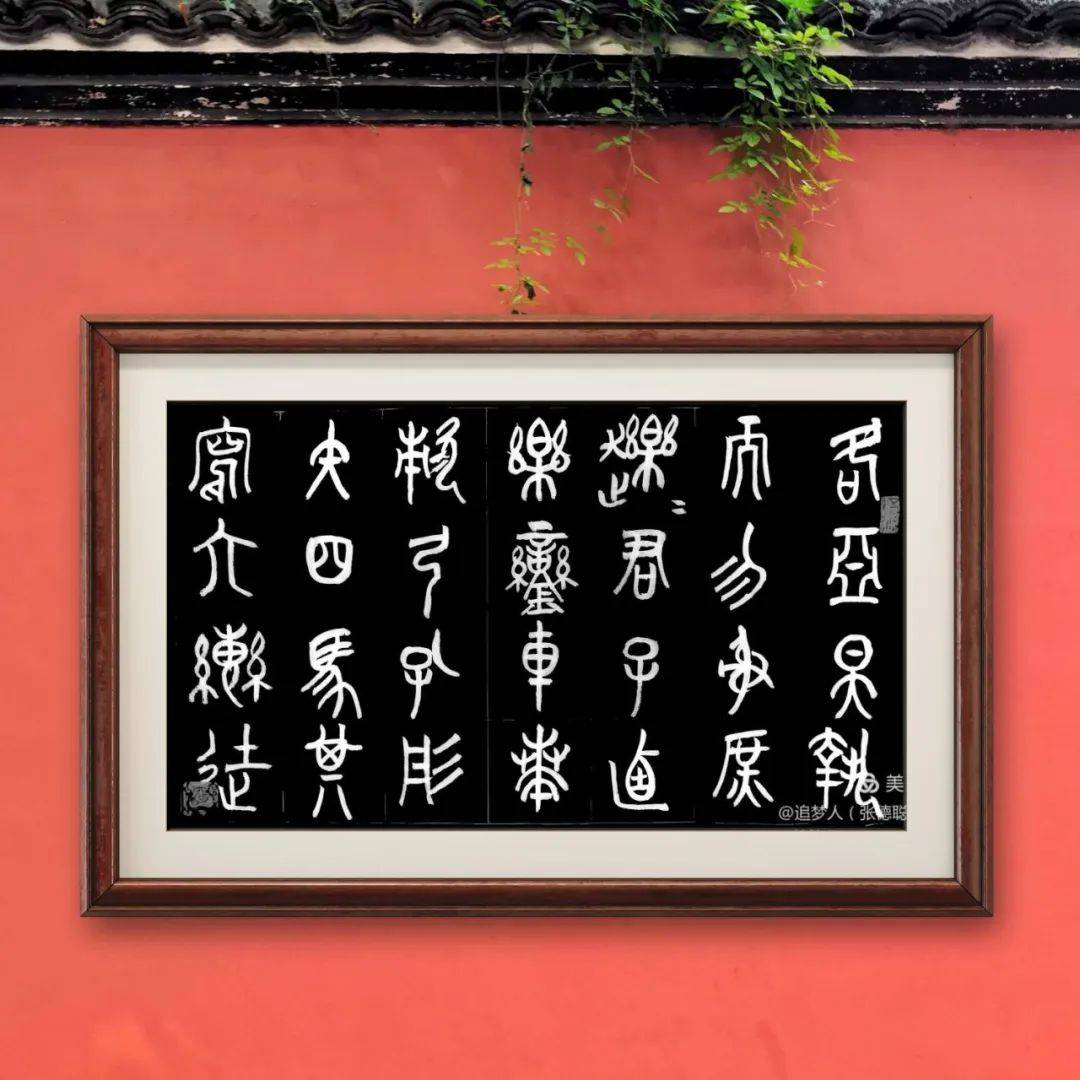 各亞昊執
而勿射庶
君子逌
樂鑾車
敕弓孔彤
矢四馬其
寫六轡徒
美
@追梦人（张德聪